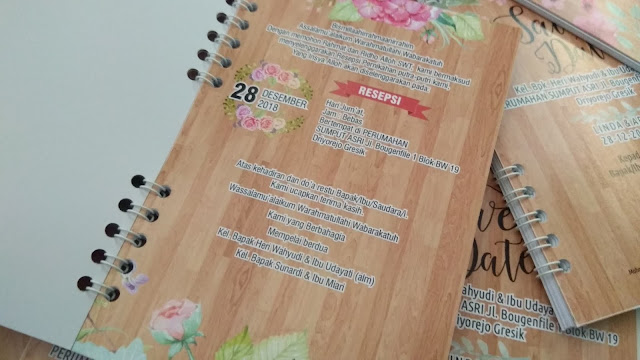 Bismillahirrahmanirrahiim
Assalamu'alaikum Warahmatullahi Wabarakatuh
Dengan memohon Rahmat dan Ridho Alloh SWT, kami bermaksud
menyelenggarakan Resepsi Pernikahan putra-putri kami,
yang Insya Alloh akan diselenggarakan pada
28 DESEMBER
2018
RESEPSI
Hari Jum'at
Jam Bebas
Bertempat di PERUMAHAN
SUMPUT ASRI Jl. Bougenfile 1 Blok BW 19
Driyorejo Gresik
Atas kehadiran dan do'a restu Bapak/Ibu/Saudara/i.
Kami ucapkan terima kasih
Wassalamu'alaikum Warahmatullah Wabarakatuh
Kami yang Berbahagia
Mempelai berdua
Kel. Bapak Heri Wahyudi & Ibu Udayati (alm)
Kel. Bapak Sunardi & Ibu Miari
Save
Date
Kel. Bpk. Heri Wahyudi & Ibu
PERUMAHAN SUMPUT ASRI
Driyorejo G
LINDA &
28.12.
Date
Wahyudi & Ibu Udaya
ASRI Jl. Bougenfile 1 Blok BW 19
Driyorejo Gresik